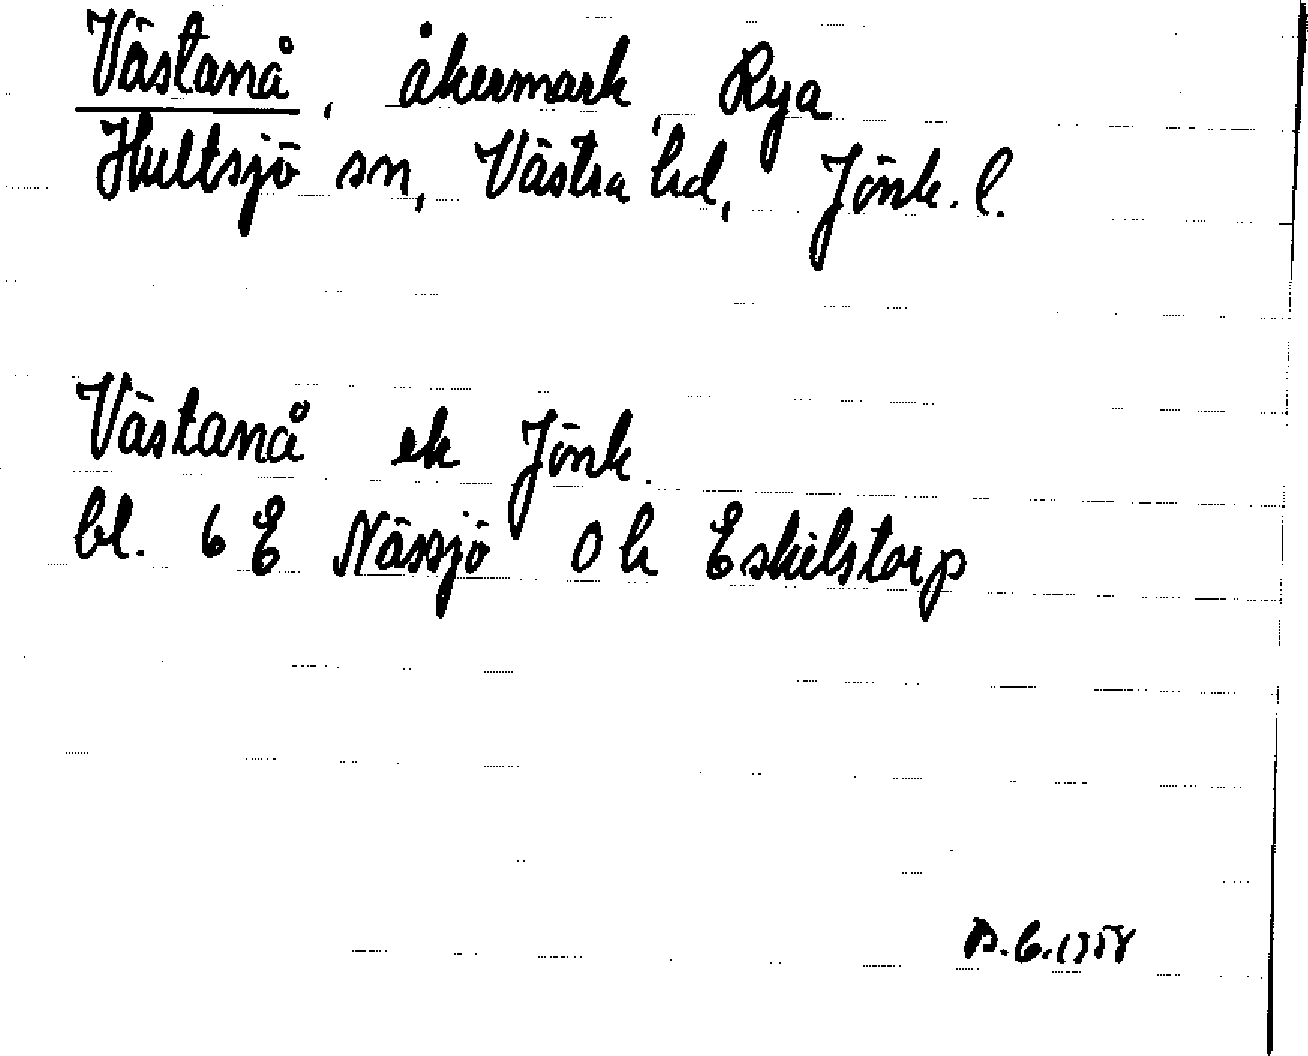 Västanå, åkermark, Rya
Hultsjö sn, Västra hd, Jönk. l.
Västanå ek Jönk.
bl. 6 E Nässjö 0 h Eskilstorp
1958